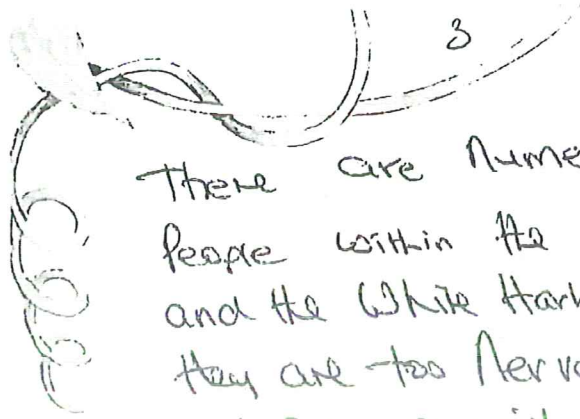 3
There are Nume
People within the
and the White Hart
they are too Nerv